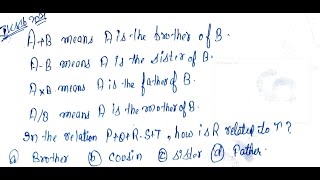 A+B means A is the brother of B.
A-B means A is the sister of B.
A×B means A is the father of B.
A/B means A is the mother of B.
In the relation how is R related to T?
(a) Brother (b) cousin (c) sister (d) Father.